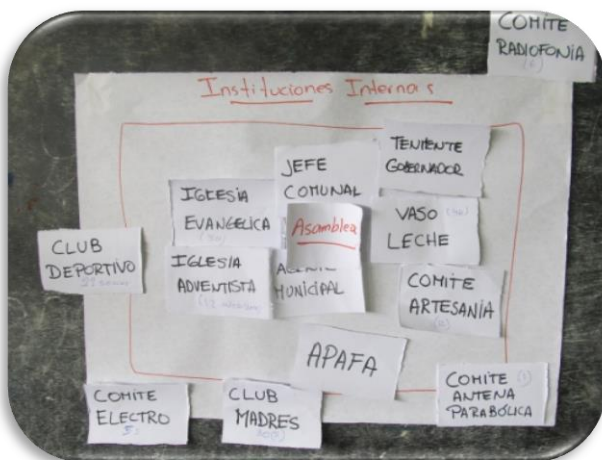 COMITE
RADIOFONÍA
(6)
Instituciones Internas
TENIENTE
GOBERNADOR
JEFE
COMUNAL
IGLESIA
EVANGELICA
Asamblea
VASO
LECHE
CLUB
DEPORTIVO
IGLESIA
ADVENTISTA
MUNICIPAL
COMITE
ARTESANÍA
APAFA
COMITE
ELECTRO
CLUB
MADRES
COMITE
ANTENA
PARABÓLICA